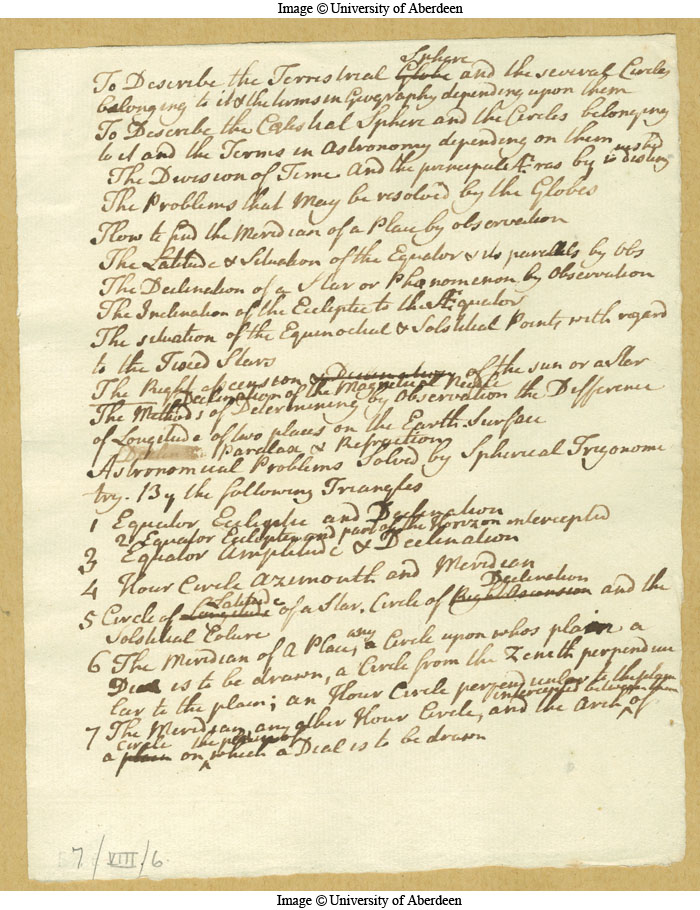 Image © University of Aberdeen
Sphere
To Describe the Terrestrial Globe and the several Circles
belonging to it & the terms in Geography depending upon them
To Describe the Cœlestial Sphere and the Circles belonging
to it and the Terms in Astronomy depending on them
The Division of Time And the principale Æras by
The Problems that May be resolved by the Globes
How to find the Meridian of a Place by observation
The Latitude & Situation of the Equator & its parallels by Obs
The Declination of a Star or Phænomenon by Observation
The Inclination of the Ecliptic to the Æquator
The situation of the Equinoctial & Solstitial Points with regard
to the Fixed Stars
The Right ascension & Declination of the sun or a Star
Declination of the Magnetical Needle
The Methods of Determining by Observation the Difference
of Longitude of two places on the Earth Surface
Paralax & Refraction
Astronomical Problems Solved by Spherical Trigonome
try. 13 y the following Triangles
1 Equator Ecliptic and Declination
2 Equator Ecliptic and part of the Horizon intercepted
3 Equator Amplitude & Declination
4 Hour Circle Azimouth and Meridian
Latitude Declination
5 Circle of Longitude of a Star. Circle of Right Ascension and the
Solstitial Colure
any
6 The Meridian of A Place, a Circle upon whos plain a
Dial is to be drawn, a Circle from the Zenith perpendicu
lar to the plain; an Hour Circle perpendicular to the plain
intercepted between them
7 The Meridian, any other Hour Circle, and the Arch of
Circle the
a plain on which a Dial is to be drawn
7/VIII/6.
Image © University of Aberdeen